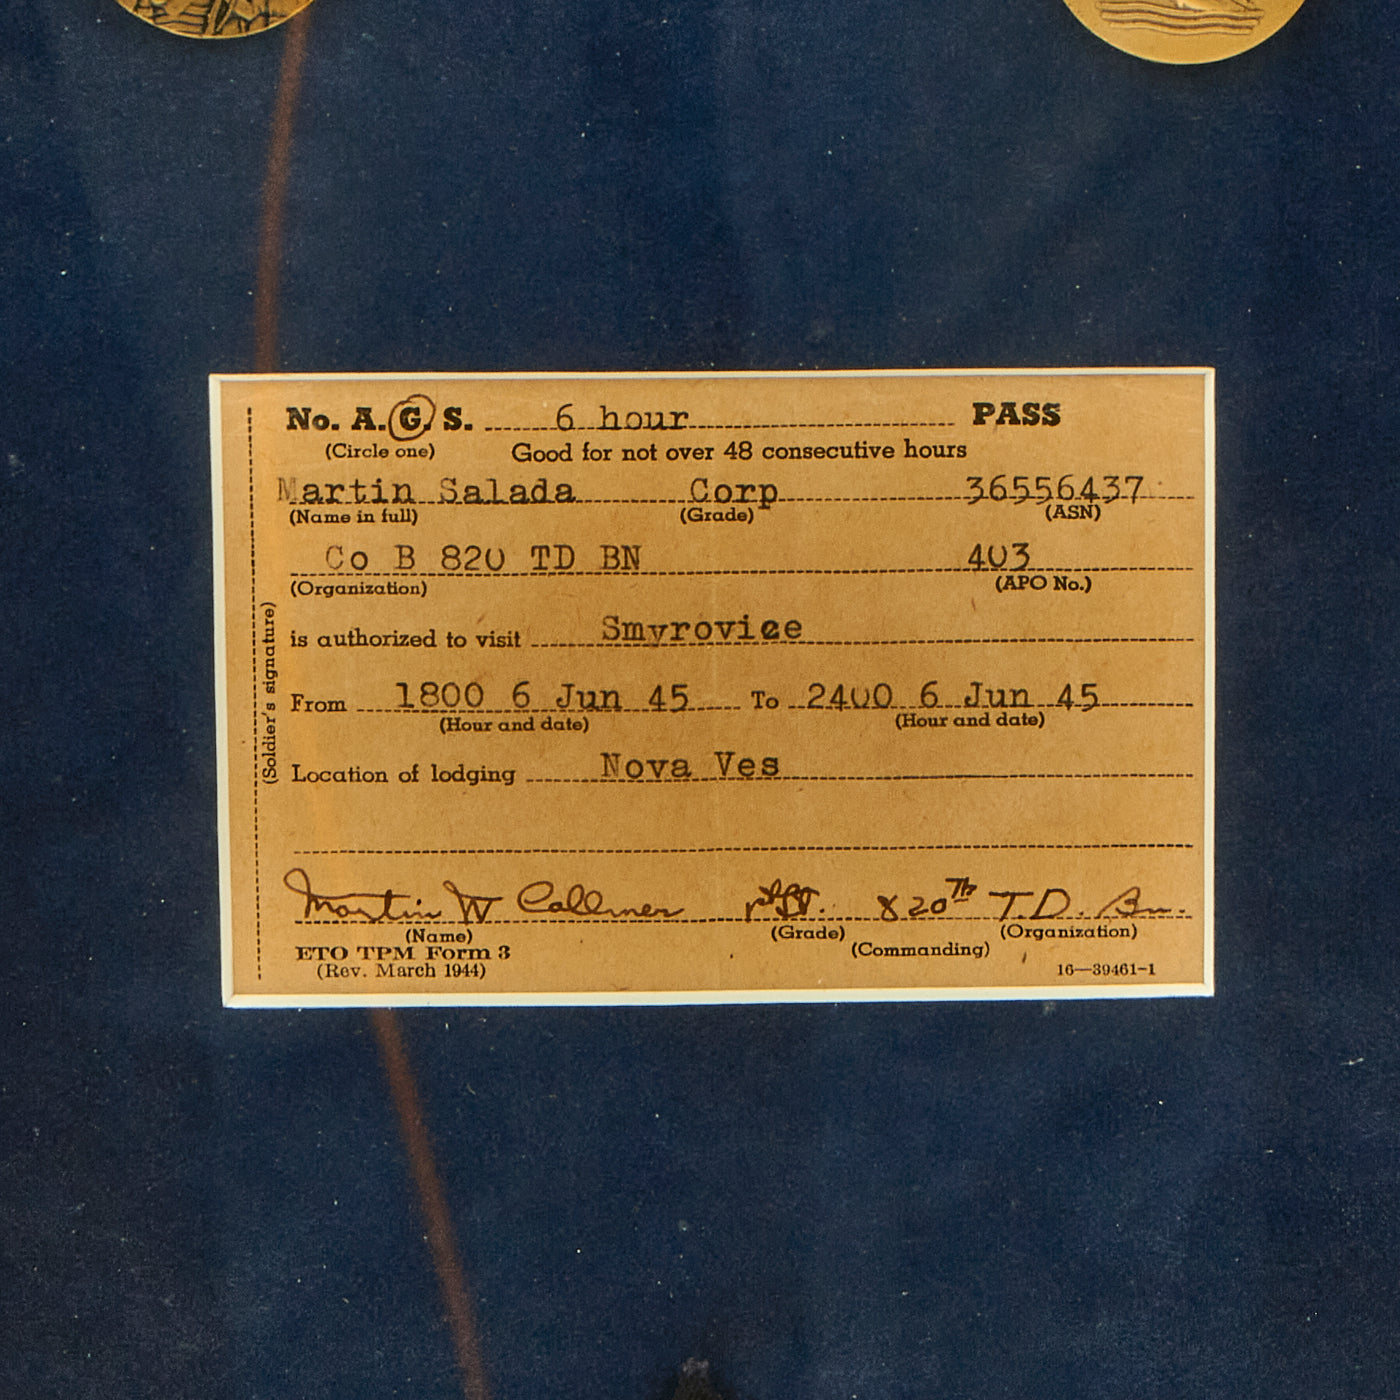 No. A. G. S. 6 hour PASS
(Circle one) Good for not over 48 consecutive hours
Martin Salada Corp 36556437
(Name in full) (Grade) (ASN)
Co B 820 TD BN 403
(Organization) (APO No.)
is authorized to visit Smyrovice
From 1800 6 Jun 45 To 2400 6 Jun 45
(Hour and date) (Hour and date)
Location of lodging Nova Ves
Martin W Callmer 1st Lt. 820th T.D. Bn.
(Name) (Grade) (Commanding) (Organization)
ETO TPM Form 3
(Rev. March 1944) 16—39461-1
(Soldier's signature)